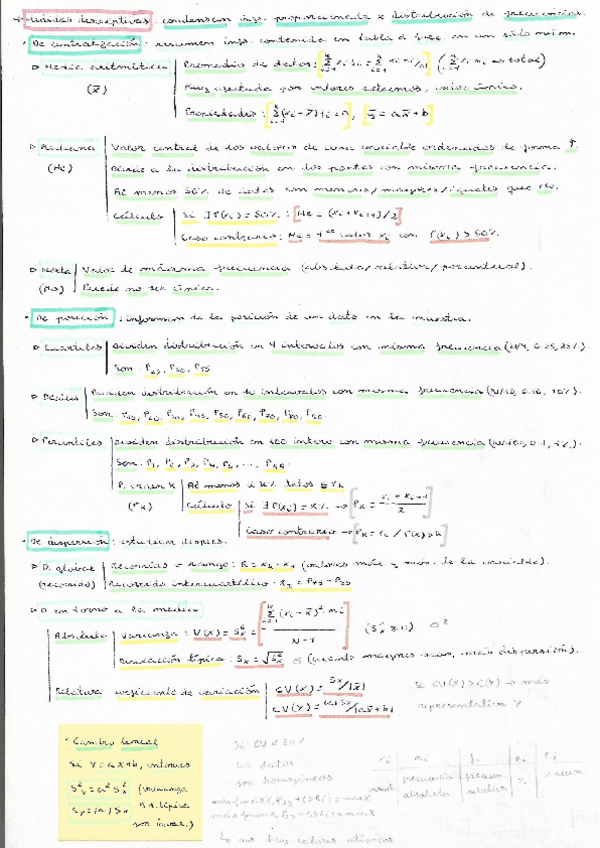 Medidas descriptivas: condensan info. proporcionada x distribución de frecuencias.
De centralización: resumen info. contenida en tabla d frec. en un sólo núm.
Media aritmética | Promedio de datos:
(x̄) | Muy afectada por valores extremos, valor único.
Propiedades: ȳ = ax̄ + b
Mediana | Valor central de los valores de una variable ordenados de forma ↑.
(Me) | Divide a la distribución en dos partes con misma frecuencia.
Al menos 50% de datos son menores/mayores/iguales que Me.
Cálculo | Si ∃ P(xi) = 50% : [Me = (xi + xi+1)/2]
Caso contrario: Me = 1er valor xi con P(xi) > 50%.
Moda | Valor de máxima frecuencia (absoluta/relativa/porcentual).
(Mo) | Puede no ser única.
De posición: informan de la posición de un dato en la muestra.
Cuartiles | Dividen distribución en 4 intervalos con misma frecuencia (N/4, 0.25, 25%).
Son: P25, P50, P75.
Deciles | Dividen distribución en 10 intervalos con misma frecuencia (N/10, 0.10, 10%).
Son: P10, P20, P30, P40, P50, P60, P70, P80, P90.
Percentiles | Dividen distribución en 100 interv con misma frecuencia (N/100, 1%).
Son: P1, P2, P3, P4, P5, ... P99.
P. orden K | Al menos el K% datos ≤ PK
(PK) | Cálculo | Si ∃ P(xi) = K% → [PK = (xi + xi+1)/2]
Caso contrario → [PK = xi / P(xi) > K]
De dispersión: estudian dispers.
D. global | Recorrido o rango: R = xk - x1 (valores máx y mín. de la variable).
(recorrido) | Recorrido intercuartílico: RI = P75 - P25
D en torno a la media
Absoluta | Varianza: V(X) = S²x = Σ (xi - x̄)² ni / N-1 (S²x ≥ 0) σ²
Desviación típica: Sx = √S²x σ (cuanto mayores sean, más dispersión).
Relativa | coeficiente de variación | CV(X) = Sx/|x̄| Si CV(X) > C(Y) → más
CV(Y) = |a|Sx/|ax̄+b| representativa Y
Cambio lineal
Si Y = aX+b, entonces
S²y = a² S²x (varianza
Sy = |a| Sx y d. típica
son invar.)
Si CV < 30%
los datos
son homogéneos
xi | ni | fi | % | Pi
frecuencia absoluta | frecuen relativa | % acum
Lo no hay valores atípicos